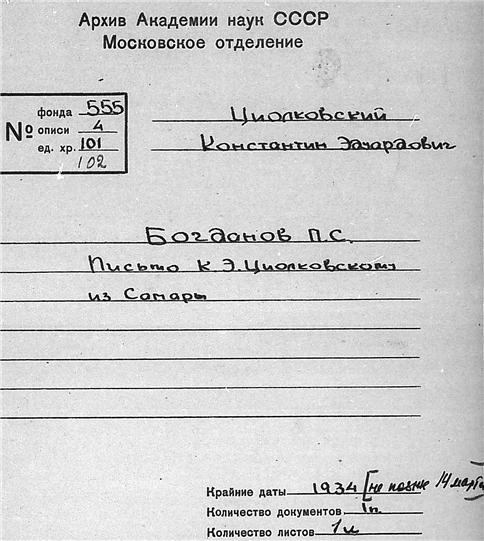 Архив Академии наук СССР
Московское отделение
№ фонда 555
описи 4
ед. хр. 101
102
Циолковский
Константин Эдуардович
Богданов П.С.
Письмо К.Э.Циолковскому
из Самары
Крайние даты 1934 [не позже 14 марта
Количество документов 1п.
Количество листов 1л